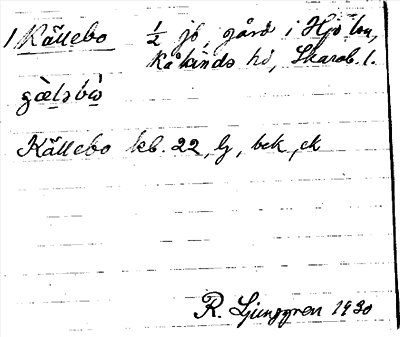 1 Källebo ½ jb, gård i Hjo ln,
Kåkinds hd, Skarab. l.
Källebo kb. 22, lg, bek, ek
R. Ljunggren 1930